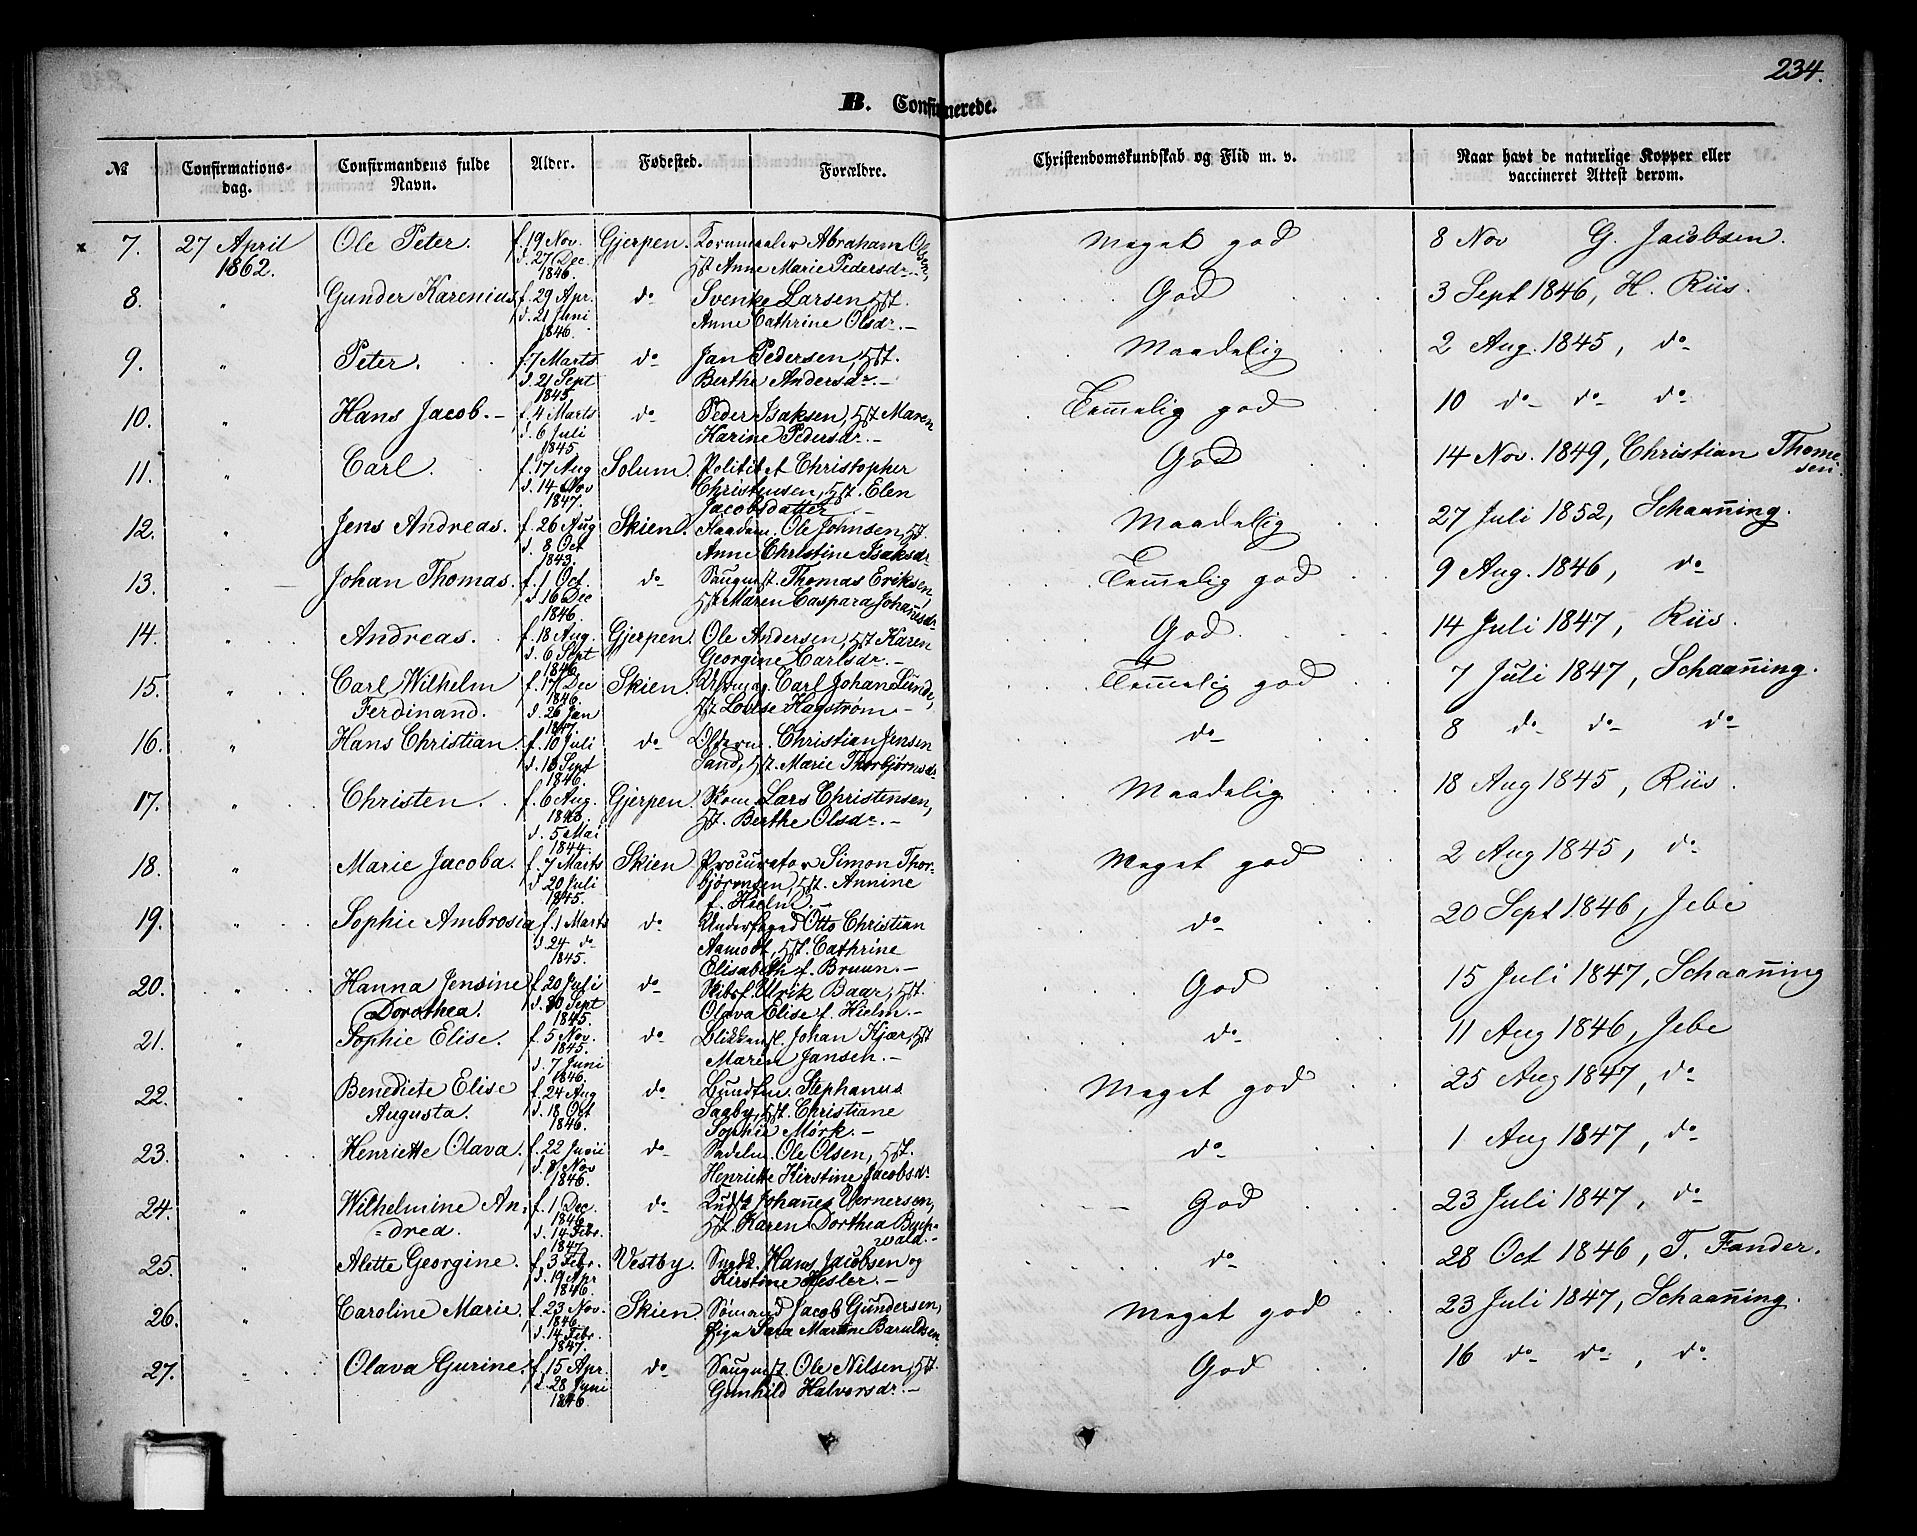 234.
B. Confirmerede.
№ Confirmations-dag. Confirmandens fulde Navn. Alder. Fødested. Forældre. Christendomskundskab og Flid m. v. Naar havt de naturlige Kopper eller vaccineret Attest derom.
7. 27 April 1862. Ole Peter. f. 19 Nov. d. 27 Dec. 1846. Gjerpen. Abraham Olsen, Hst Anne Marie Pedersdr. Meget god 8 Nov G. Jacobsen.
8. " Gunder Karenius f. 29 Apr. d. 21 Juni 1846. do Svenke Larsen, Hst. Anne Cathrine Olsdr. – God 3 Sept 1846, H. Riis.
9. " Peter. f. 7 Marts d. 21 Sept 1845. do Jan Pedersen, Hst. Berthe Andersdr. – Maadelig 2 Aug. 1845, do
10. " Hans Jacob. – f. 4 Marts d. 6 Juli 1845. do Peder Isaksen, Hst Maren Karine Pedersdr. – Temelig god 10 do do do
11. " Carl. f. 17 Aug d. 14 Nov 1847. Solum. Politibet Christopher Christensen, Hst. Elen Jacobsdatter – God 14 Nov. 1849, Christian Thomesen.
12. " Jens Andreas. f. 26 Aug d. 8 Oct 1843. Skien. Ole Johnsen, Hst. Anne Christine Isaksdr Maadelig 27 Juli 1852, Schaaning.
13. " Johan Thomas. f. 1 Oct. d. 16 Dec 1846. do Saugmst. Thomas Eriksen, Hst Maren Caspara Johanesdr. Temelig god 9 Aug. 1846, do
14. " Andreas. f. 18 Aug. d. 6 Sept 1846. Gjerpen. Ole Andersen, Hst Karen Georgine Carlsdr. – God. 14 Juli 1847, Riis.
15. " Carl Wilhelm Ferdinand. f. 17 Dec 1846. d. 26 Jan 1847. Skien. Carl Johan Lunde, Hst Lovise Hagstrøm – Temelig god 7 Juli 1847, Schaaning.
16. " Hans Christian. f. 10 Juli d. 18 Sept 1846. do Christian Jensen Sand, Hst. Marie Thorbjørnsdr do 8 do do do
17. " Christen. f. 6 Aug. 1843. d. 5 Mai 1844. Gjerpen. Skom. Lars Christensen, Hst. Berthe Olsdr. – Maadelig 18 Aug 1845, Riis.
18. " Marie Jacoba. f. 7 Marts d. 20 Juli 1845. Skien Procurator Simon Thorbjørnsen, Hst. Annine f. Hielm. – Meget god 2 Aug 1845, do
19. " Sophie Ambrosia f. 1 Marts d. 24 do 1845. do Underfoged Otto Christian Aamodt, Hst. Cathrine Elisabeth f. Bruun. – do 20 Sept 1846, Jebe
20. " Hanna Jensine Dorothea. f. 20 Juli d. 30 Sept 1845. do Skibsf. Ulrik Baar, Hst. Olava Elise f. Hielm. – God 15 Juli 1847, Schaaning
21. " Sophie Elise. f. 5 Nov. 1845. d. 7 Juni 1846. do Blikkensl. Johan Kjær, Hst Maren Jansen. – do 11 Aug 1846, Jebe
22. " Benedicte Elise Augusta. f. 24 Aug d. 18 Oct 1846. do Bundtm. Stephanus Saaby, Hst. Christiane Sophie Mørk. – Meget god 25 Aug 1847, do
23. " Henriette Olava. f. 22 Junii d. 8 Nov 1846. do Sadelm. Ole Olsen, Hst. Henriette Kirstine Jacobsdr do 1 Aug 1847, do
24. " Wilhelmine Andrea. f. 1 Dec. 1846. d. 14 Febr. 1847. do Johanes Wernersen, Hst. Karen Dorthea Buchwald. – God 23 Juli 1847, do
25. " Alette Georgine. f. 3 Febr. d. 19 Apr 1846. Vestby. Hans Jacobsen og Kirstine Hesler. – do 28 Oct 1846, T. Fander.
26. " Caroline Marie. f. 23 Nov. 1846 d. 14 Febr. 1847. Skien. Sømand Jacob Gundersen, Pige Sara Martine Baruldsen. Meget god 23 Juli 1847, Schaaning.
27. " Olava Gurine. f. 15 Apr. d. 28 Juni 1846. do Saugmst. Ole Nilsen, Hst. Gunhild Halvorsdr. – God 16 do do, do